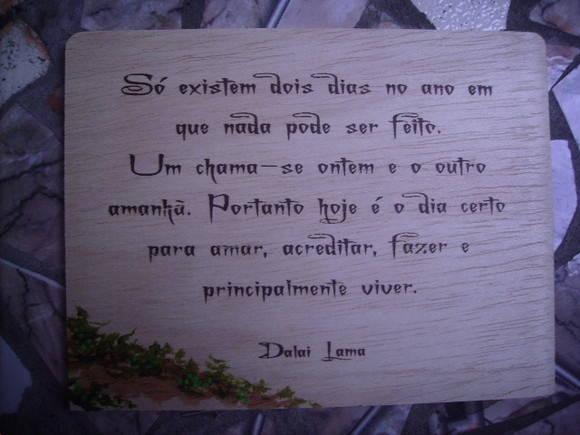 Só existem dois dias no ano em
que nada pode ser feito.
Um chama-se ontem e o outro
amanhã. Portanto hoje é o dia certo
para amar, acreditar, fazer e
principalmente viver.
Dalai Lama